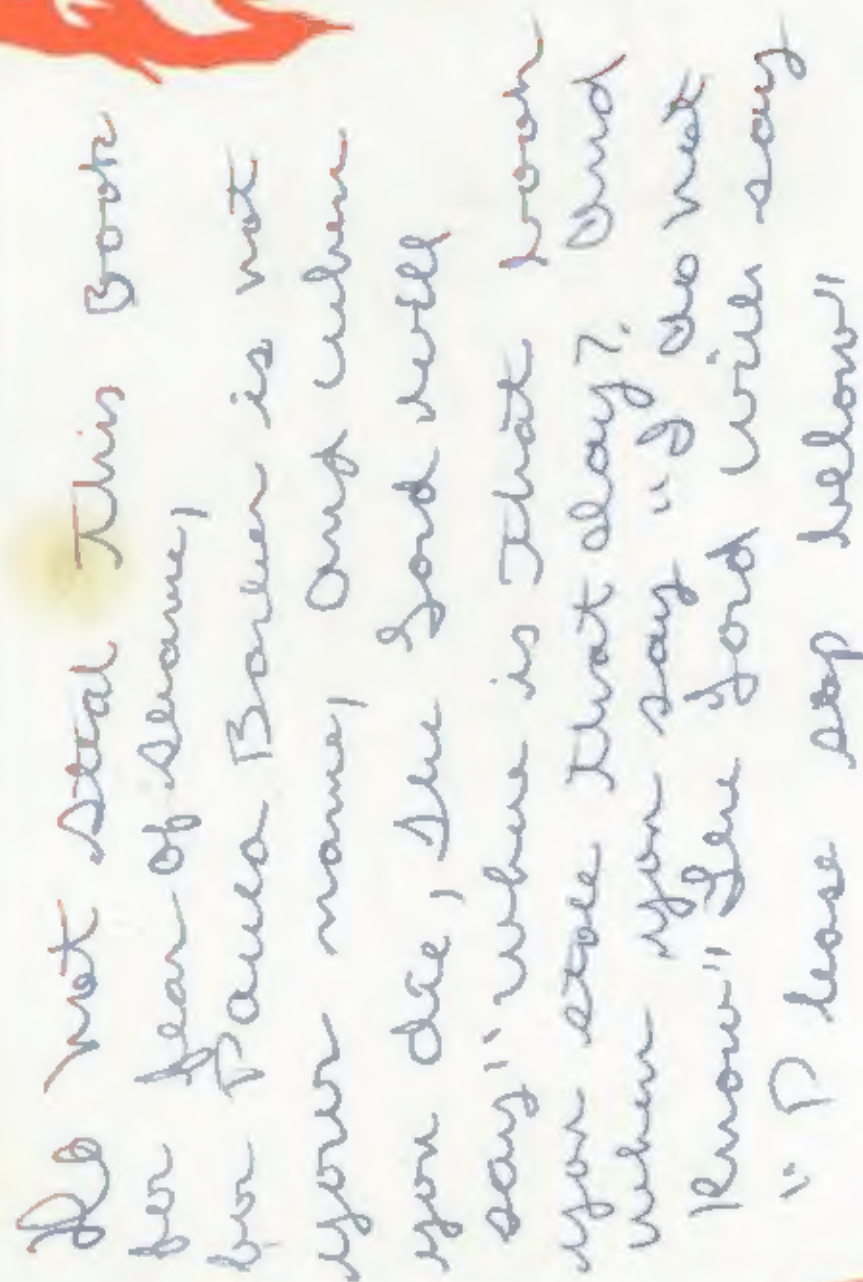 Do not steal this Book
for fear of shame,
for Paula Barker is not
your name, and when
you die, The Lord will
say "where is that book
you stole that day?. and
when you say "I do not
know" The Lord will say
"Please step below"